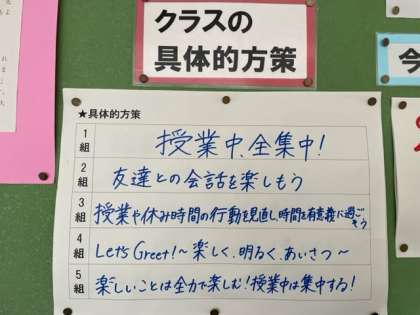 クラスの
具体的方策
今
★具体的方策
1組 授業中、全集中!
2組 友達との会話を楽しもう
3組 授業や休み時間の行動を見直し、時間を有意義に過ごそう
4組 Let's Greet!～楽しく、明るく、あいさつ～
5組 楽しいことは全力で楽しむ!授業中は集中する!